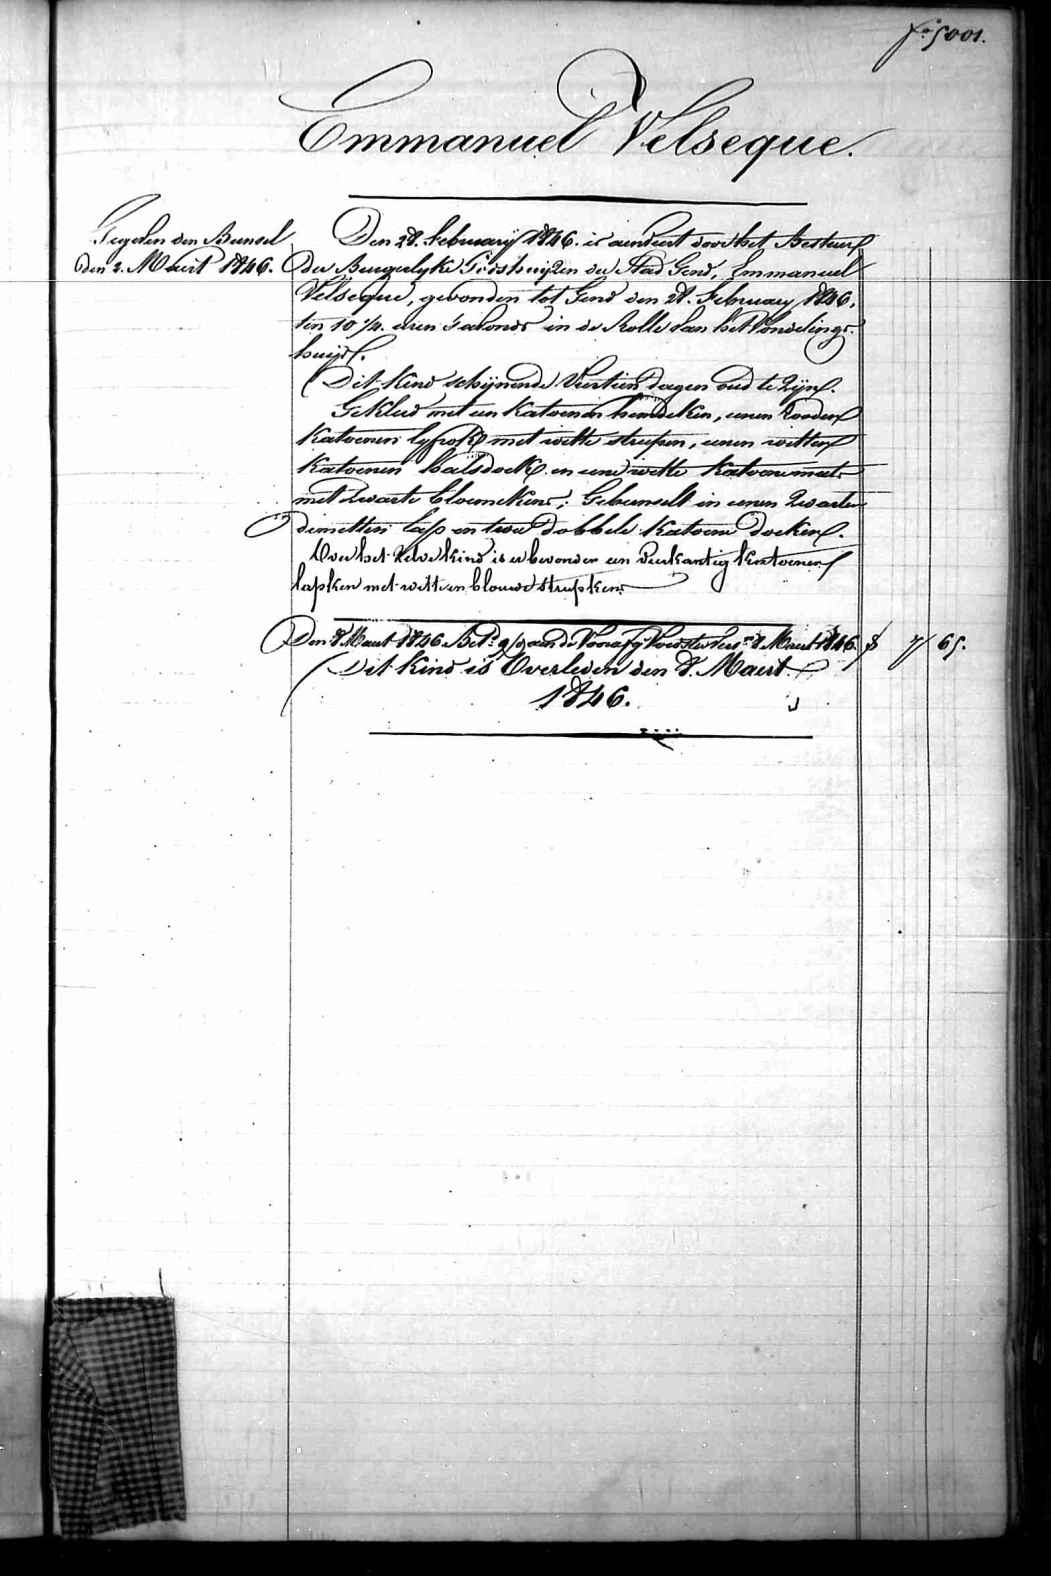 fo 5001.
Emmanuel Velseque.
Gegeven den Bunsel
den 2. Maert 1846.
Den 28. February 1846. is aenveert door het Bestuer
der Burgerlyke Godshuyzen der Stad Gend, Emmanuel
Velseque, gevonden tot Gend den 28. February 1846,
ten 10 1/4. uren s'avonds in de Rolle van het Vondelings-
huys.
Dit Kind schijnende Veertien dagen oud te zijn.
Gekleed met een Katoenen hemdeken, eenen Rooden
Katoenen lyfrok met witte streepen, eenen witten
Katoenen halsdoek en eene witte Katoene muts
met zwarte bloemekens; Gebunselt in eenen zwarten
dimitten lap en twee dobbele Katoene doeken.
Over het zelve kind is er bevonden een vierkantig Kattoenen
lapken met witte en blouwe streepkens
Den 8 Maert 1846 Bet. aen de Voedster 8 Maert 1846. f 7 65.
Dit Kind is Overleden den 8. Maert
1846.